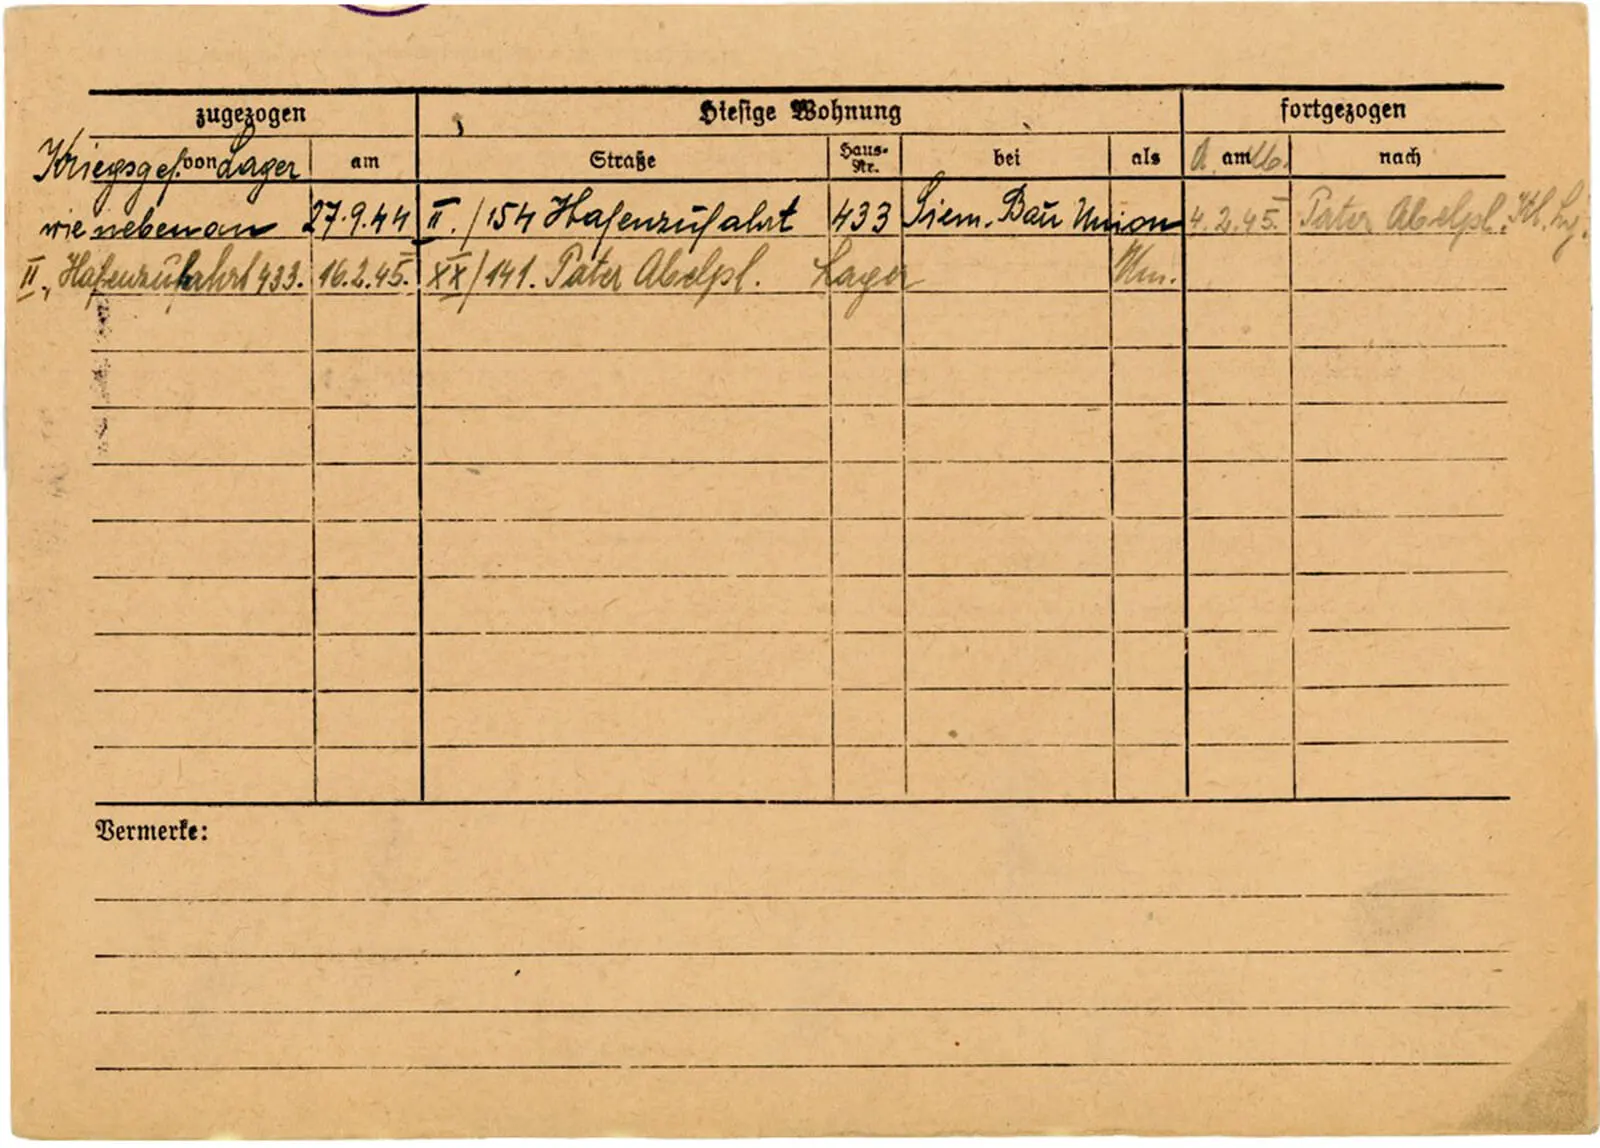 zugezogen Hiesige Wohnung fortgezogen
Kriegsgef. von Lager am Straße Haus-Nr. bei als am nach
wie nebenan 27.9.44 II./154 Hafenzufahrt 433 Siem. Bau Union 4.2.45. Pater Abelpl.
II., Hafenzufahrt 433. 16.2.45. XX/141. Pater Abelpl. Lager Um.
Vermerke: